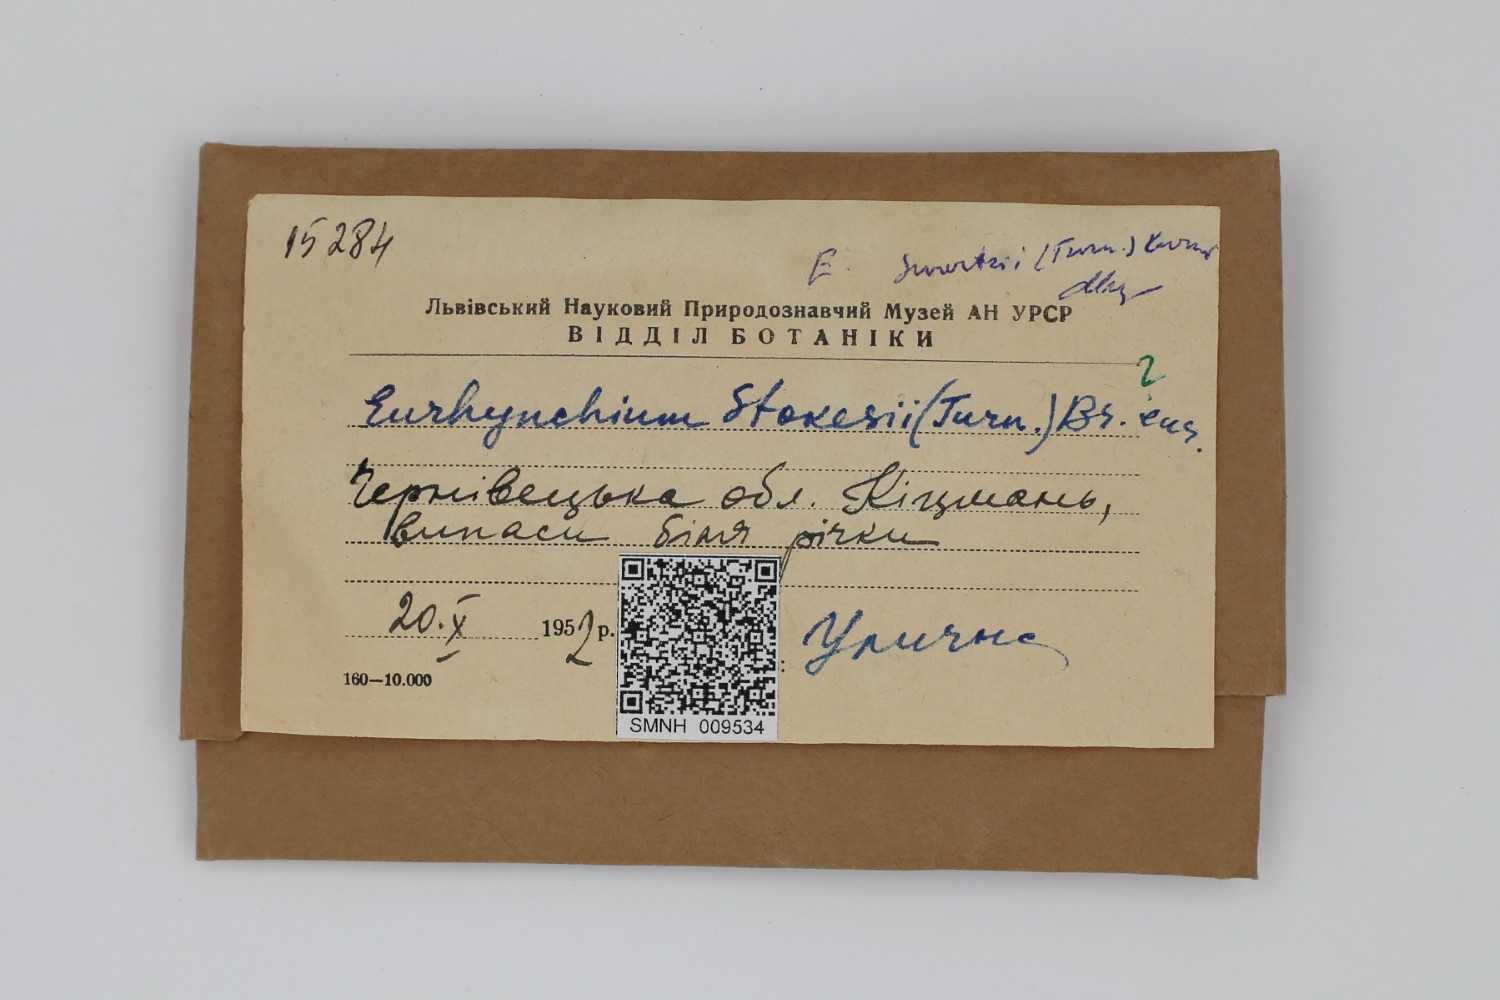 15284
E. Swartzii (Turn.)
Львівський Науковий Природознавчий Музей АН УРСР
ВІДДІЛ БОТАНІКИ
?
Eurhynchium Stokesii (Turn.) Br. eur.
Чернівецька обл. Кіцмань,
випаси біля річки
20.X 1952 р.
: Улична
160—10.000
SMNH 009534